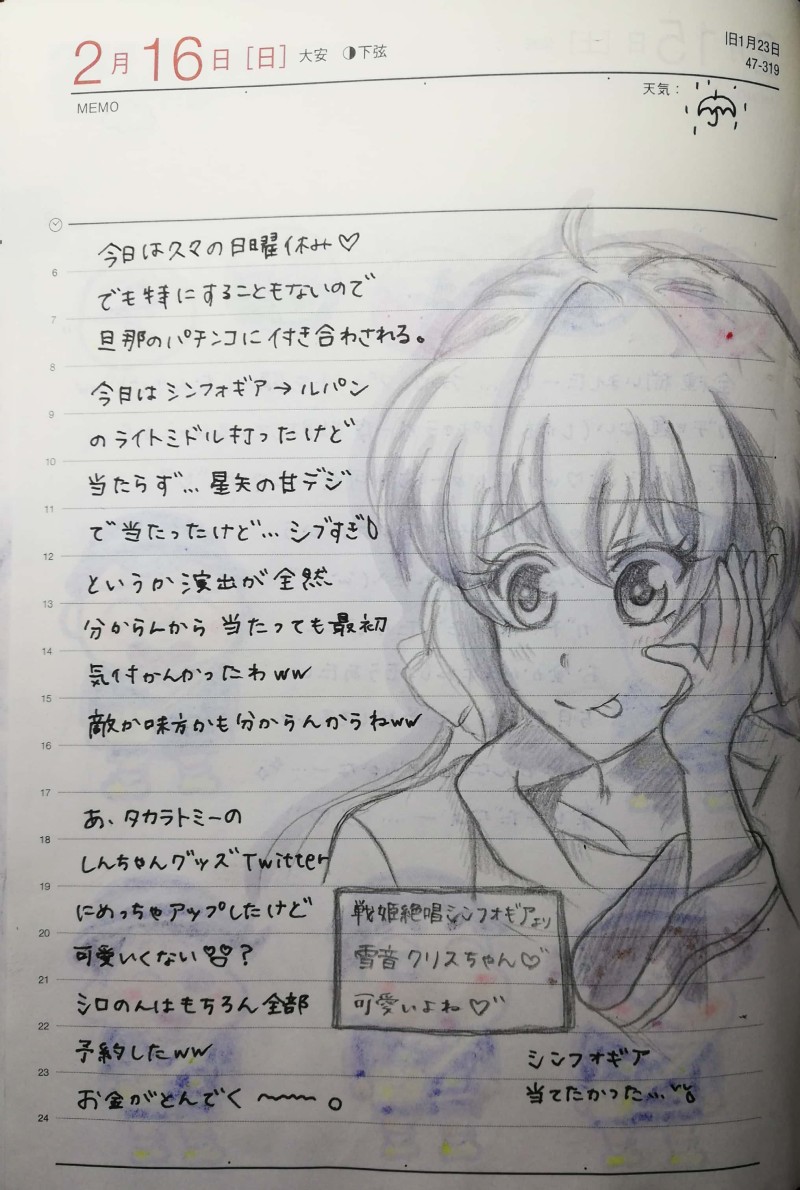 2月16日[日] 大安 ◑下弦
旧1月23日
47-319
MEMO
天気:
今日は久々の日曜休み♡
でも特にすることもないので
旦那のパチンコに付き合わされる。
今日はシンフォギア→ルパン
のライトミドル打ったけど
当たらず…星矢の甘デジ
で当たったけど…シブすぎ
というか演出が全然
分からんから当たっても最初
気付かんかったわww
敵か味方かも分からんからねww
あ、タカラトミーの
しんちゃんグッズTwitter
にめっちゃアップしたけど
可愛いくない?
シロのんはもちろん全部
予約したww
お金がとんでく〜〜。
戦姫絶唱シンフォギアより
雪音クリスちゃん♡
可愛いよね♡
シンフォギア
当てたかった…
6
7
8
9
10
11
12
13
14
15
16
17
18
19
20
21
22
23
24